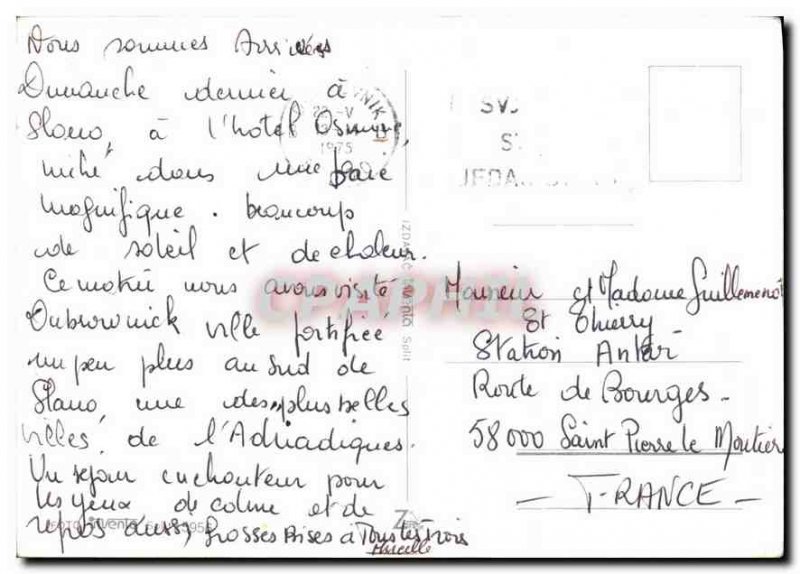 Nous sommes Arrivées
Dimanche dernier à
Slano, à l'hôtel Osmine,
niché dans une baie
magnifique. beaucoup
de soleil et de chaleur.
Ce matin nous avons visité
Dubrownick ville fortifiée
un peu plus au Sud de
Slano, une des plus belles
villes de l'Adriadiques.
Un séjour enchanteur pour
les yeux de calme et de
repos aussi, Grosses Bises à Tous les Trois
Marcelle
NIK
22-V
1975
SV
S
JEDA
Monsieur et Madame Guillemenot
et Thierry
Station Antar
Route de Bourges -
58000 Saint Pierre le Moutier
- FRANCE -
Split
CPAPHIL